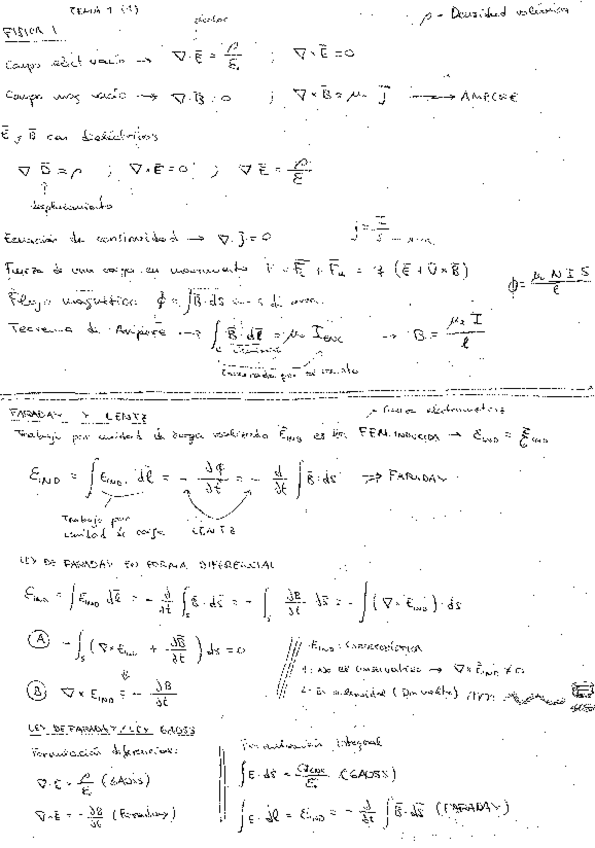 TEMA 1 (1)
ρ - Densidad volúmica
FISICA 1
Campo elect vacío → ∇·E̅ = ρ/ε₀ ; ∇×E̅ = 0
Campo mag vacío → ∇·B̅ = 0 ; ∇×B̅ = μ₀ j̅ → AMPERE
E̅ y B̅ con dieléctricos
∇ D̅ = ρ ; ∇×E = 0 ; ∇ E̅ = ρ/ε
desplazamiento
Ecuación de continuidad → ∇·j̅ = 0 j = I/S
Fuerza de una carga en movimiento F̅ = F̅e + F̅m = q (E̅ + v̅×B̅)
ϕ = μ N I S/ℓ
Flujo magnético ϕ = ∫B̅·ds
Teorema de Ampere → ∫ B̅·dℓ̅ = μ₀ I enc → B = μ₀ I/ℓ
FARADAY Y LENTZ
Fuerza electromotriz
Trabajo por unidad de carga E̅IND es la FEM. INDUCIDA →
εIND = ∫ EIND · dℓ̅ = - ∂ϕ/∂t = - d/∂t ∫ B̅·ds̅ → FARADAY
Trabajo por unidad de carga
LENTZ
LEY DE FARADAY EN FORMA DIFERENCIAL
εIND = ∫EIND dℓ̅ = - d/∂t ∫s B̅·ds̅ = - ∫s ∂B/∂t ds̅ = - ∫(∇×EIND)·ds
A - ∫s (∇×EIND + ∂B̅/∂t) ds = 0
EIND: CARACTERÍSTICA
1: No es conservativo → ∇×EIND ≠ 0
B ∇×EIND = - ∂B/∂t
LEY DE FARADAY / LEY GAUSS
Formulación diferencial:
Formulación integral
∇·E = ρ/ε₀ (GAUSS)
∫E·ds̅ = (GAUSS)
∇×E = - ∂B/∂t (Faraday)
∫E·dℓ = εIND = - d/∂t ∫B̅·ds̅ (FARADAY)